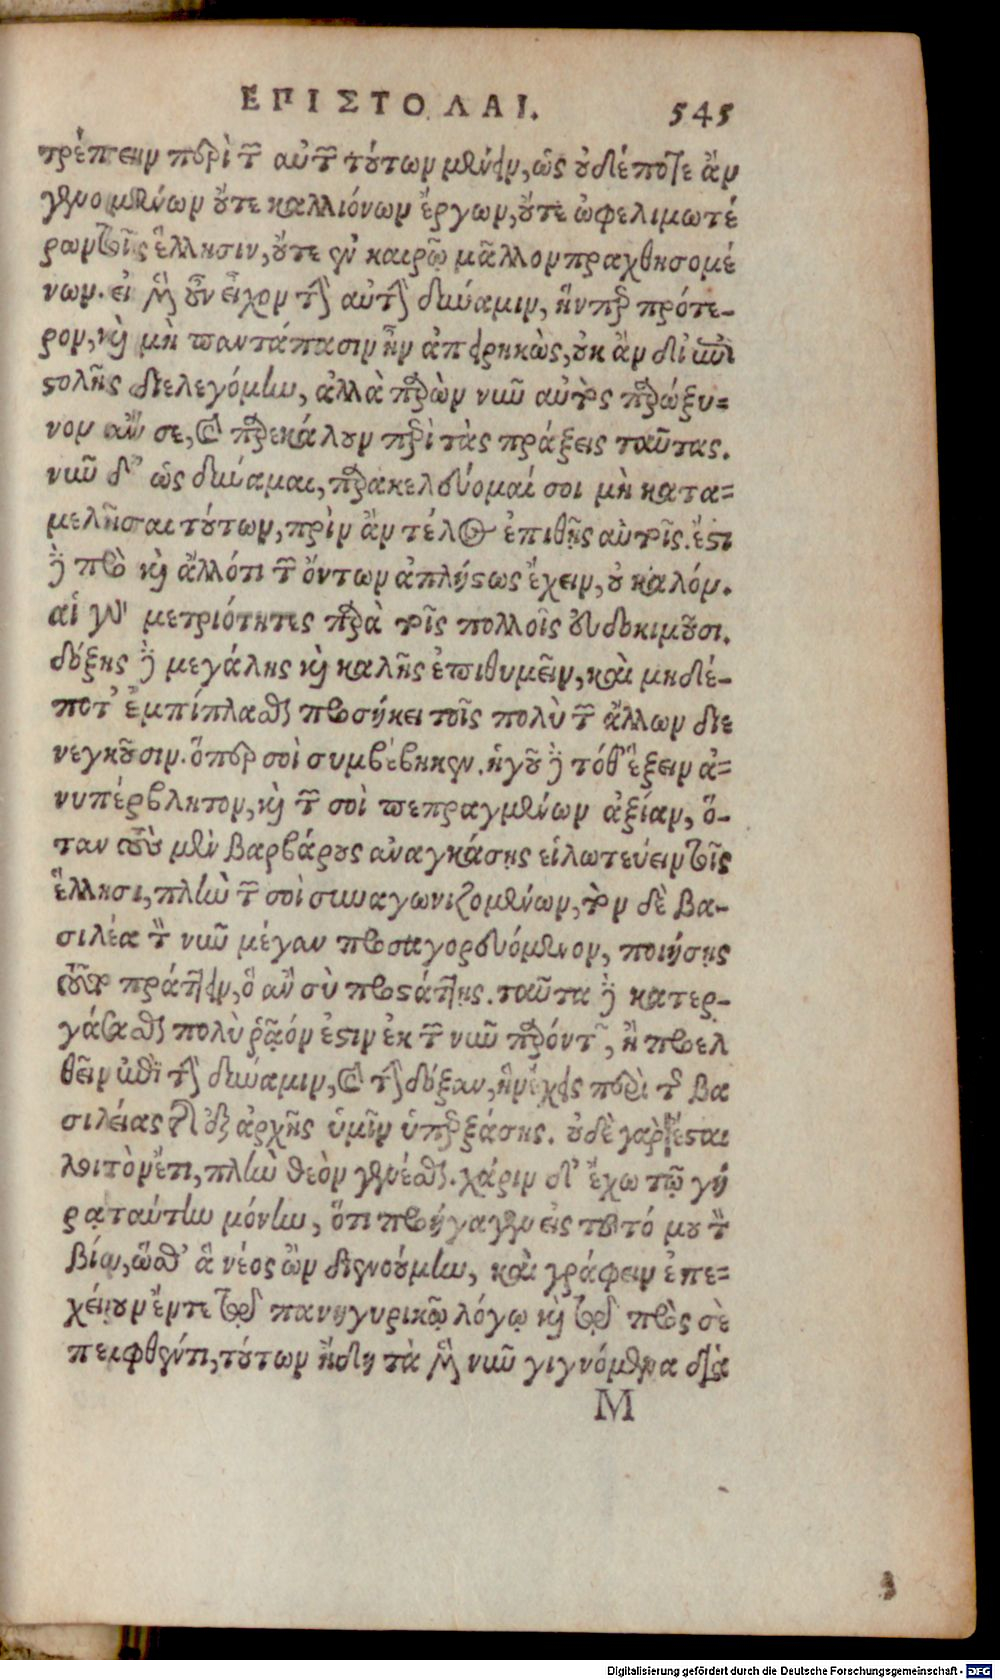 ΕΠΙΣΤΟΛΑΙ. 545
τρέπειν περὶ τῶν αὐτῶν τούτων μένειν, ὡς οὐδέποτε ἂν
γενομένων οὔτε καλλιόνων ἔργων, οὔτε ὠφελιμωτέ
ρων τοῖς ἕλλησιν, οὔτε ἐν καιρῷ μᾶλλον πραχθησομέ
νων. εἰ μὲν οὖν εἶχον τὴν αὐτὴν δύναμιν, ἥνπερ πρότε-
ρον, καὶ μὴ παντάπασιν ἦν ἀπειρηκὼς, οὐκ ἂν δι' ἐπι
στολῆς διελεγόμην, ἀλλὰ παρὼν νῦν αὐτὸς παρώξυ=
νον ἄν σε, καὶ παρεκάλουν περὶ τὰς πράξεις ταῦτας.
νῦν δ' ὡς δύναμαι, παρακελεύομαί σοι μὴ κατα=
μελῆσαι τούτων, πρὶν ἂν τέλος ἐπιθῇς αὐτοῖς. ἔστι
δὲ πρὸ καὶ ἄλλό τι τῶν ὄντων ἀπλήστως ἔχειν, οὐ καλόν.
αἱ γὰρ μετριότητες παρὰ τοῖς πολλοῖς εὐδοκιμοῦσι.
δόξης δὲ μεγάλης καὶ καλῆς ἐπιθυμεῖν, καὶ μηδέ-
ποτ' ἐμπίπλασθαι προσήκει τοῖς πολὺ τῶν ἄλλων διε
νεγκοῦσιν. ὅπερ σοὶ συμβέβηκεν. ἡγοῦ δὲ τόθ' ἕξειν ἀ=
νυπέρβλητον, καὶ τῶν σοὶ πεπραγμένων ἀξίαν, ὅ-
ταν τοὺς μὲν βαρβάρους ἀναγκάσῃς εἱλωτεύειν τοῖς
ἕλλησι, πλὴν τῶν σοὶ συναγωνιζομένων, τὸν δὲ βα-
σιλέα τὸν νῦν μέγαν προσαγορευόμενον, ποιήσῃς
τοῦτο πράττειν, ὃ ἂν σὺ προστάττῃς. ταῦτα δὲ κατερ-
γάσασθαι πολὺ ῥᾷόν ἐστιν ἐκ τῶν νῦν παρόντων, ἢ προελ
θεῖν ἐπὶ τὴν δύναμιν, καὶ τὴν δόξαν, ἣν ἔχεις περὶ τῆς βα
σιλείας τῆς ἐξ ἀρχῆς ὑμῖν ὑπερξάσης. οὐδὲ γὰρ ἔσται
λοιπὸν ἔτι, πλὴν θεὸν γενέσθαι. χάριν δ' ἔχω τῷ γή
ρᾳ ταύτην μόνην, ὅτι προήγαγεν εἰς τοῦτό μου τὸν
βίον, ὥσθ' ἃ νέος ὢν διενοούμην, καὶ γράφειν ἐπε=
χείρουν ἔν τε τῷ πανηγυρικῷ λόγῳ καὶ τῷ πρὸς σὲ
πεμφθέντι, τούτων ἤδη τὰ μὲν νῦν γιγνόμενα διὰ
M
Digitalisierung gefördert durch die Deutsche Forschungsgemeinschaft - DFG